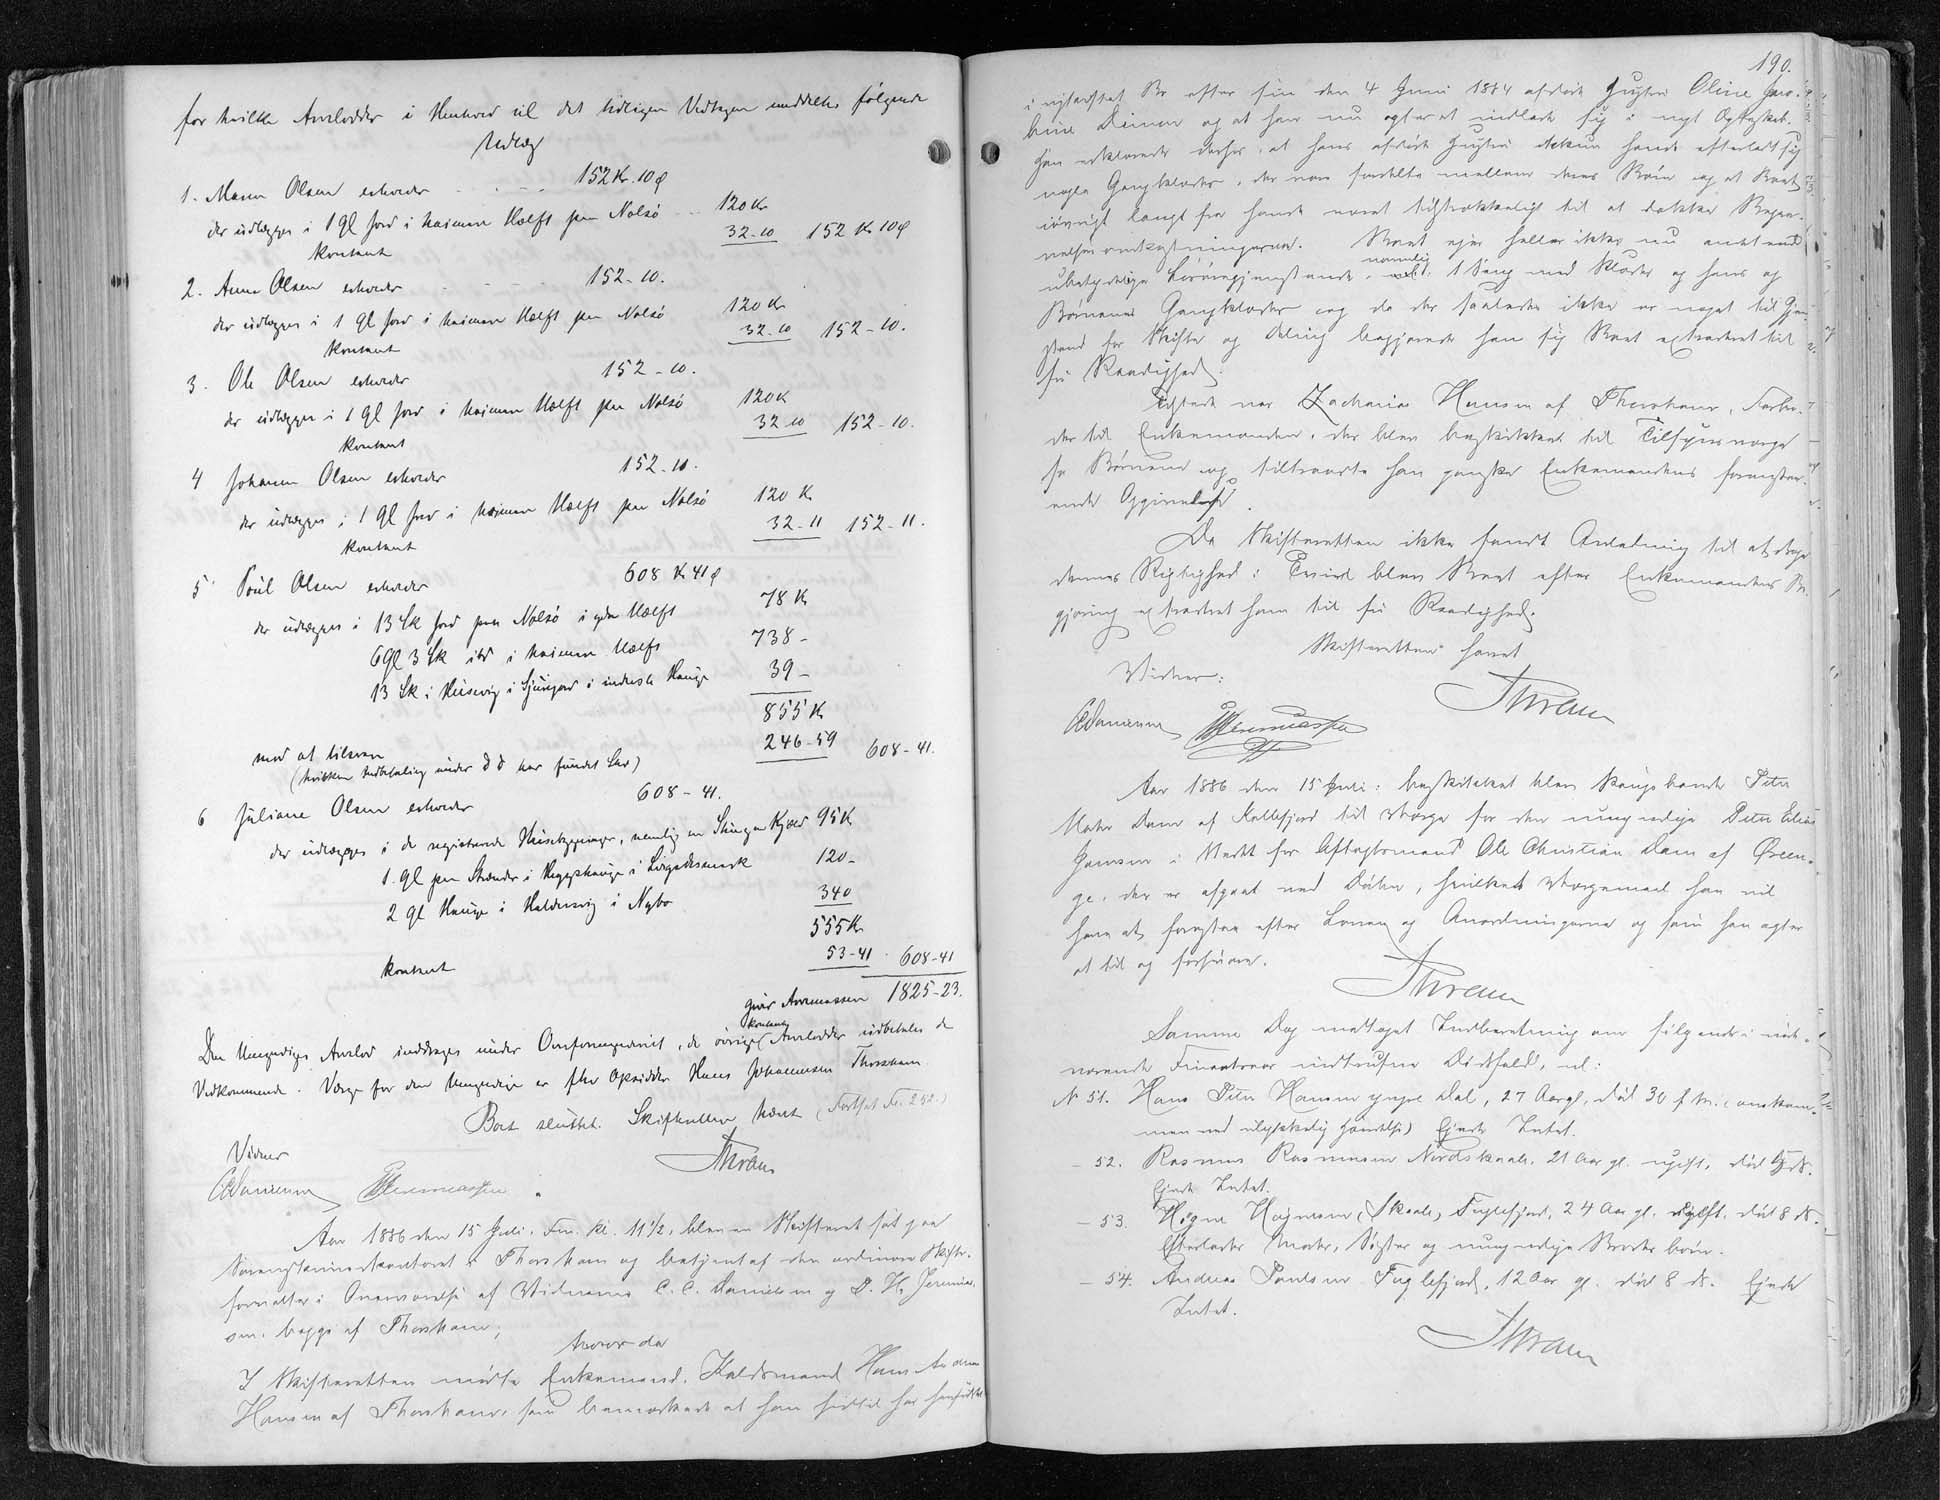 for hvilke Arvelodder i Henhold til det tidligere Vedtagne meddeltes følgende
Udlæg
1. Maren Olsen erholder 152 Kr. 10 ø
der udlægges i 1 Gl Jord i heimare Helft paa Nolsø 120 Kr
kontant 32-10 152 Kr 10 ø
2. Anna Olsen erholder 152-10.
der udlægges i 1 Gl Jord i heimare Helft paa Nolsø 120 Kr
kontant 32-10 152-10.
3. Ole Olsen erholder 152-10.
der udlægges i 1 Gl Jord i heimare Helft paa Nolsø 120 Kr
kontant 32-10 152-10.
4 Johanne Olsen erholder 152-11.
der udlægges i 1 Gl Jord i heimare Helft paa Nolsø 120 Kr
kontant 32-11 152-11.
5 Poul Olsen erholder 608 Kr 41 ø
der udlægges i 13 Sk Jord paa Nolsø i ydre Helft 78 Kr
6 Gl 3 Sk ibd i heimare Helft 738-
13 Sk i Husevig i inderste Hauge 39-
855 Kr
mod at tilsvare 246-59 608-41.
(hvilken Indbetaling under D D har fundet Sted)
6 Juliane Olsen erholder 608-41.
der udlægges i de registrerede Huusbygninger, nemlig en Kjær 95 Kr
1 Gl paa Strænder i 120-
2 Gl Hauge i Haldersvig i Nybo 340
555 Kr
kontant 53-41 608-41
giver Arvemassen 1825-23.
Den Umyndiges Arvelod inddrages under Overformynderiet, de øvrige Arvelodder udbetales de
kontante
Vedkommende. Værge for den Umyndige er fhv Opsidder Hans Johannesen Thorshavn
Boet sluttet. Skifteretten hævet (Fortsat Fo. 252.)
Vidner
CCDanielsen DHJeremiassen
Aar 1886 den 15 Juli, Fm. Kl. 11 1/2, blev en Skifteret sat paa
Sorenskriverkontoret i Thorshavn og betjent af den ordinære Skifte-
forvalter i Overværelse af Vidnerne C. C. Danielsen og D. H. Jeremias-
sen, begge af Thorshavn;
hvor da
I Skifteretten mødte Enkemand, Kaldsmand Hans Andreas
Hansen af Thorshavn, som bemærkede at han hidtil har hensiddet
190.
i uskiftet Bo efter sin den 4 Juni 1884 afdøde Hustru Oline Jaco-
bine Dimon og at han nu agter at indlade sig i nyt Ægteskab.
Han erklærede derfor, at hans afdøde Hustru alskun havde efterladt sig
nogle Gangklæder, der var fordelte mellem deres Børn og at Boet
iøvrigt langt fra havde været tilstrækkeligt til at dække Begra-
velsesomkostningerne. Boet ejer heller ikke nu andet end
ubetydelige Løsøregjenstande, nemlig 1 Seng med Klæder og hans og
Børnenes Gangklæder og da der saaledes ikke er noget til Gjen-
stand for Skifte og Deling begjærede han sig Boet extraderet til
fri Raadighed.
Tilstede var Zacharias Hansen af Thorshavn, Farbro-
der til Enkemanden, der blev beskikket til Tilsynsværge
for Børnene og tiltraadte han ganske Enkemandens foranstaa-
ende Opgivelse.
Da Skifteretten ikke fandt Anledning til at drage
dennes Rigtighed i Tvivl blev Boet efter Enkemandens Be-
gjæring extraderet ham til fri Raadighed.
Skifteretten hævet
Vidner:
CCDanielsen DHJeremiassen
Aar 1886 den 15 Juli: beskikket blev Kongsbonde Peter
Mohr Dam af Kollefjord til Værge for den umyndige Peter Elias
Jensen i Stedet for Aftægtsmand Ole Christian Dam af Øreen-
ge, der er afgaat ved Døden, hvilket Værgemaal han vil
have at forestaa efter Loven og Anordningerne og som han agter
at til og forsvare.
Samme Dag modtaget Indberetning om følgende i nær-
værende indtrufne Dødsfald, nl:
No 51. Hans Peter Hansen yngre Dal, 27 Aar gl, død 30 f. M. (omkom-
men ved ulykkelig Hændelse) Ejede Intet.
- 52. Rasmus Rasmussen Nordskaale, 21 Aar gl. ugift, død 5 ds.
Ejede Intet.
- 53. Højgne Højnesen (Skaale) Fuglefjord, 24 Aar gl. ugift. død 8 ds.
Efterlader Moder, Søster og umyndige Broderbørn.
- 54. Andreas Poulsen Fuglefjord, 12 Aar gl. død 8 ds. Ejede
Intet.